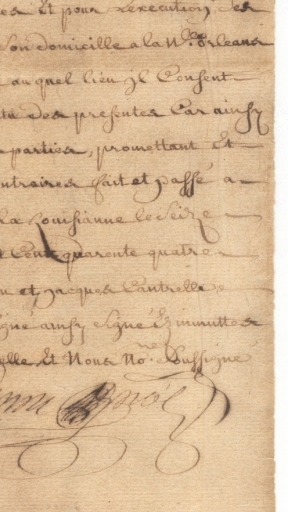 es Et pour L'execution des
Son domicille a la Nlle orleans
auquel lieu Jl Consent
tu des presentes Car ainsy
parties, promettant Et
ontraires fait et passé a
La Louisianne le Seize
t Cent quaronte quatre
et, Jacques Cantrelle
igné ainsy signé Es minuttes
elle Et Nous No.re Soussigné